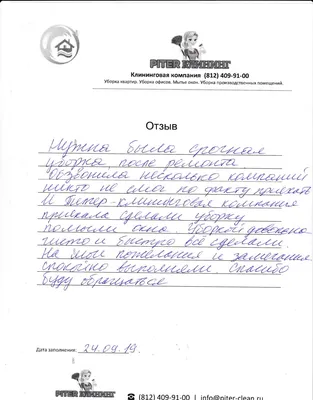 PITER КЛИНИНГ
Клининговая компания (812) 409-91-00
Уборка квартир. Уборка офисов. Мытье окон. Уборка производственных помещений.
Отзыв
Нужна была срочная
уборка после ремонта.
Обзвонила несколько компаний
никто не смог по факту приехать
И Питер-клининговая компания
приехала сделали уборку
помыли окна. Уборкой довольна
чисто и быстро все сделали.
На мои пожелания и замечания
спокойно выполняли. Спасибо
буду обращаться
Дата заполнения: 24.09.19.
PITER КЛИНИНГ
(812) 409-91-00 | info@piter-clean.ru